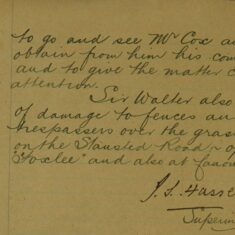 to go and see Mr Cox a
obtain from him his com
and to give the matter c
attention.
Sir Walter also
of damage to fences an
trespassers over the gras
on the Stansted Road
and also at
Superin